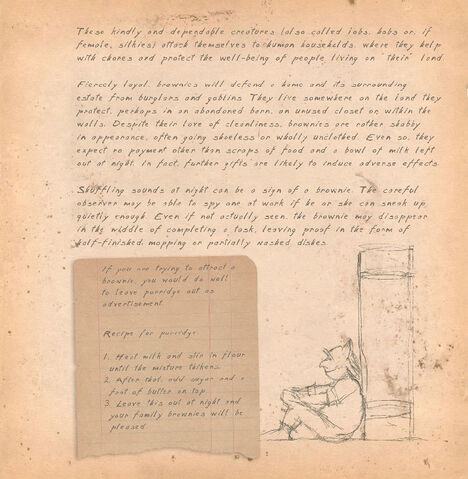 These kindly and dependable creatures (also called lobs, hobs or, if
female, silkies) attach themselves to human households, where they help
with chores and protect the well-being of people living on "their" land.
Fiercely loyal, brownies will defend a home and its surrounding
estate from burglars and goblins. They live somewhere on the land they
protect, perhaps in an abandoned barn, an unused closet or within the
walls. Despite their love of cleanliness, brownies are rather shabby
in appearance, often going shoeless or wholly unclothed. Even so, they
expect no payment other than scraps of food and a bowl of milk left
out at night. In fact, further gifts are likely to induce adverse effects.
Shuffling sounds at night can be a sign of a brownie. The careful
observer may be able to spy one at work if he or she can sneak up
quietly enough. Even if not actually seen, the brownie may disappear
in the middle of completing a task, leaving proof in the form of
half-finished mopping or partially washed dishes.
If you are trying to attract a
brownie, you would do well
to leave porridge out as
advertisement.
Recipe for porridge
1. Heat milk and stir in flour
until the mixture thickens.
2. After that, add sugar and a
front of butter on top.
3. Leave this out at night and
your family brownies will be
pleased.